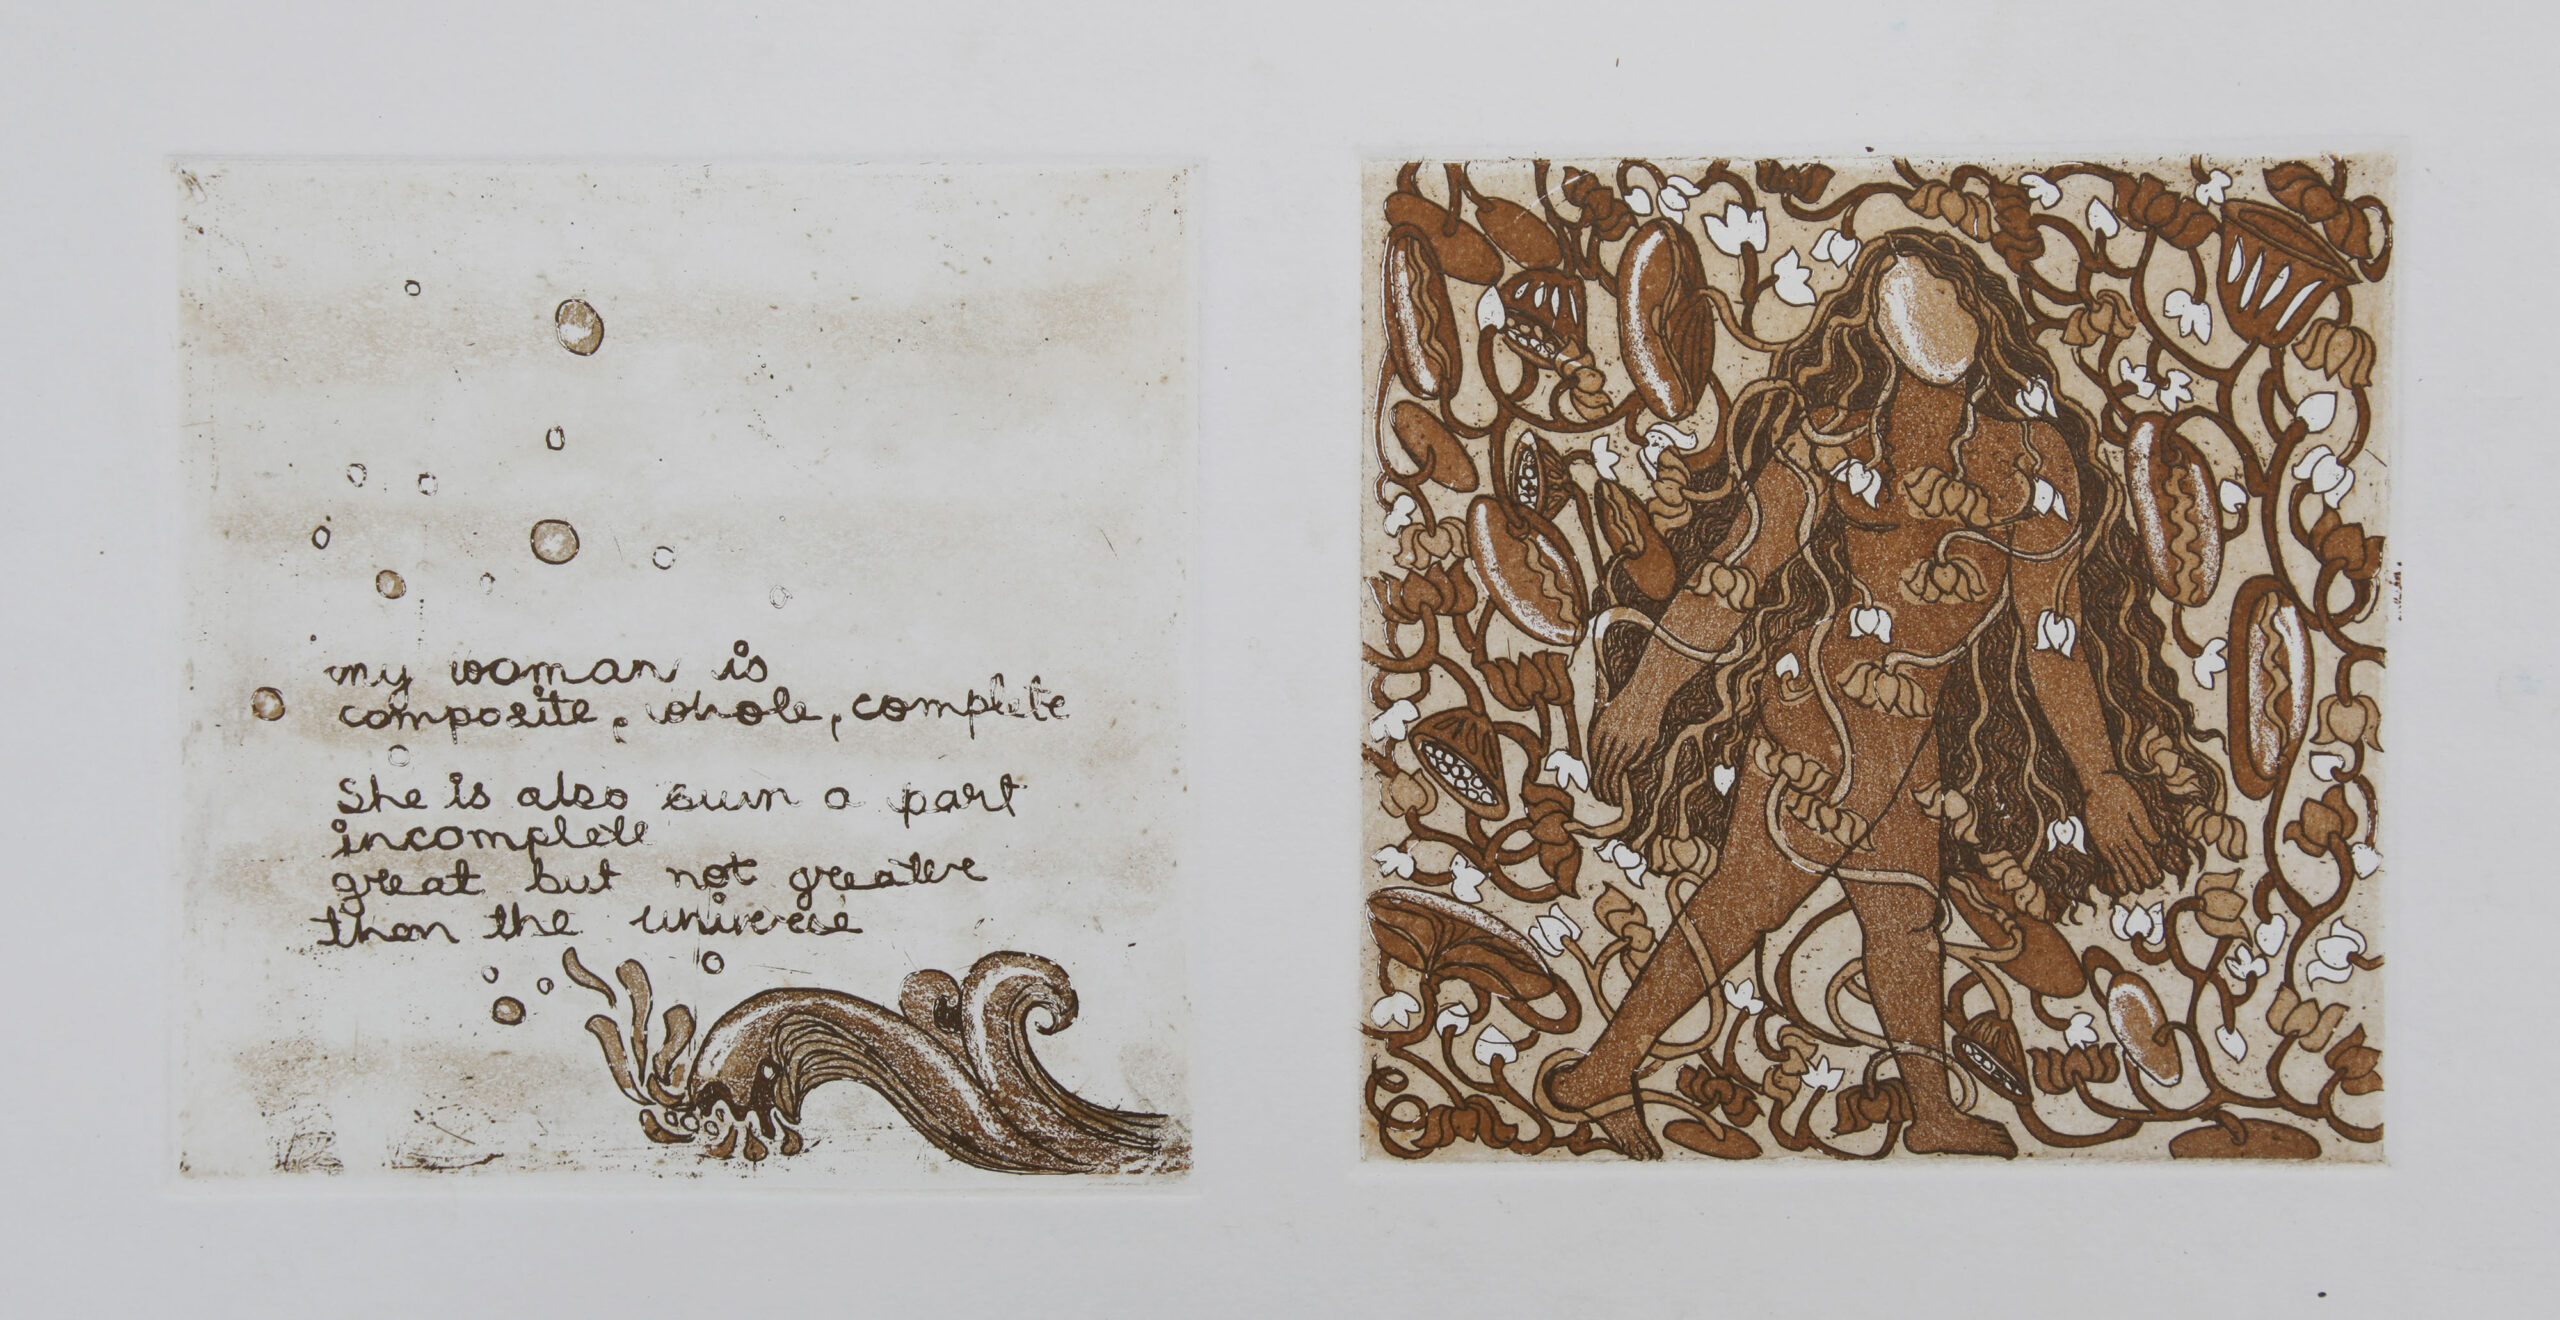 my woman is
composite, whole, complete
She is also a part
incomplete
great but not greater
than the universe